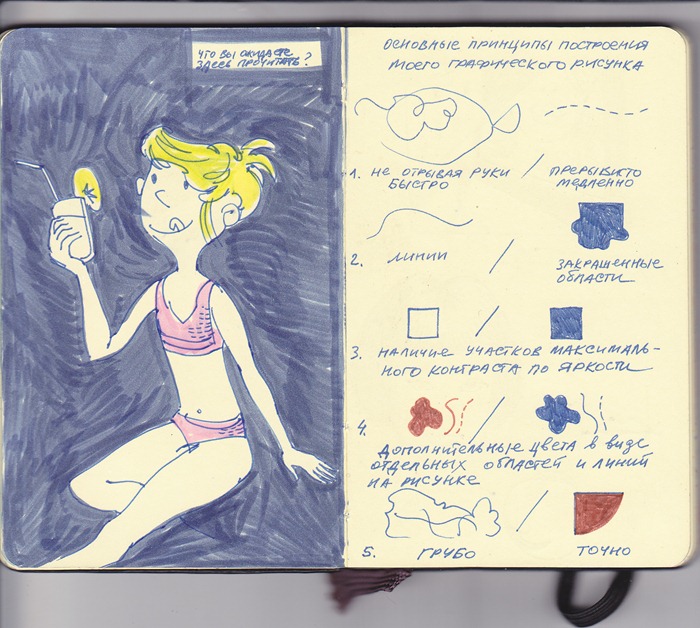 ЧТО ВЫ ОЖИДАЕТЕ
ЗДЕСЬ ПРОЧИТАТЬ?
ОСНОВНЫЕ ПРИНЦИПЫ ПОСТРОЕНИЯ
МОЕГО ГРАФИЧЕСКОГО РИСУНКА
1. НЕ ОТРЫВАЯ РУКИ / ПРЕРЫВИСТО
БЫСТРО МЕДЛЕННО
2. ЛИНИИ / ЗАКРАШЕННЫЕ
ОБЛАСТИ
3. НАЛИЧИЕ УЧАСТКОВ МАКСИМАЛЬ-
НОГО КОНТРАСТА ПО ЯРКОСТИ
4.
ДОПОЛНИТЕЛЬНЫЕ ЦВЕТА В ВИДЕ
ОТДЕЛЬНЫХ ОБЛАСТЕЙ И ЛИНИЙ
НА РИСУНКЕ
5. ГРУБО / ТОЧНО